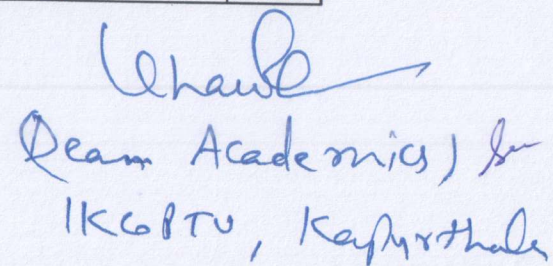 Dean Academics)
IKGPTU, Kapurthala